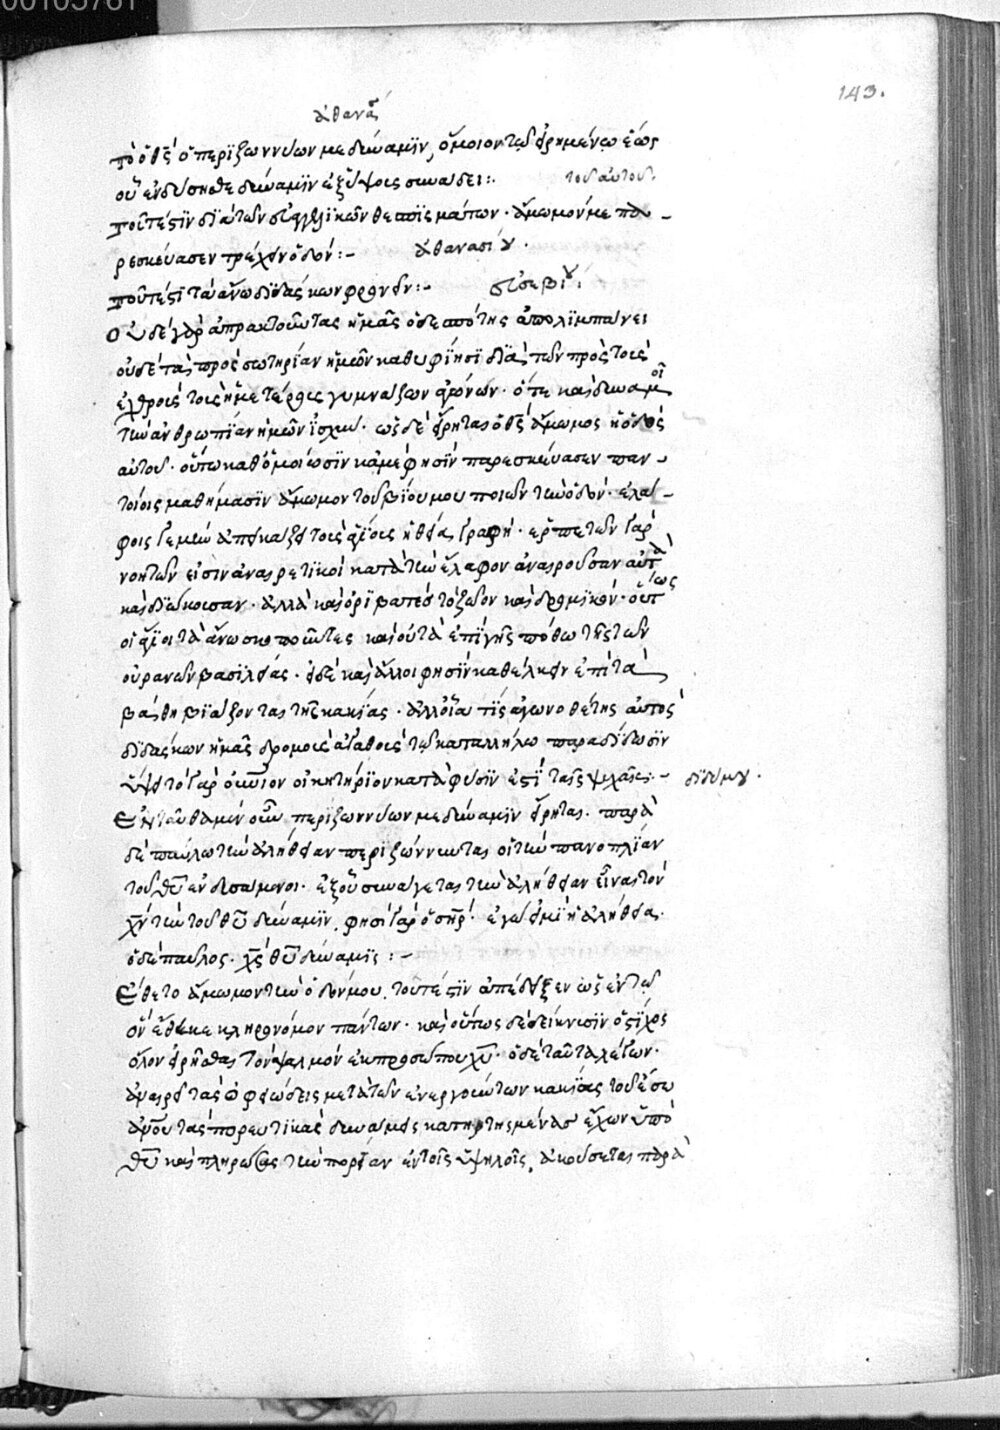 143.
ἀθανασ
τὸ ὁ θς ὁ περιζωννύων με δύναμιν, ὅμοιον τῷ εἰρημένῳ ἕως
οὗ ἐνδύσησθε δύναμιν ἐξ ὕψους συνάδει:. τοῦ αὐτοῦ.
τουτέστιν διὰ τῶν εὐαγγελικῶν θεσπισμάτων. ἄμωμόν με πα
ρεσκεύασεν τρέχειν ὁδόν:- ἀθανασίου.
τουτέστι τὰ ἄνω διδάσκων φρονεῖν:- εὐσεβίου.
Οὐδὲ γὰρ ἀπρακτοῦντας ἡμᾶς ὁ δεσπότης ἀπολιμπάνει
οὐδὲ τὰ πρὸς σωτηρίαν ἡμῶν καθυφίησι διὰ τῶν πρὸς τοὺς
ἐχθροὺς τοὺς ἡμετέρους γυμνάζων ἀγώνων. ὅτε καὶ δυναμοῖ
τὴν ἀνθρωπίνην ἡμῶν ἰσχύν. ὡς δὲ εἴρηται ὁ θς ἄμωμος ἡ ὁδὸς
αὐτοῦ. οὕτω καθ' ὁμοίωσιν κἀμέ φησιν παρεσκεύασεν παν
τοίοις μαθήμασιν ἄμωμον τοῦ βίου μου ποιῶν τὴν ὁδόν. ἐλά
φοις γε μὴν ἀπεικάζει τοὺς ἁγίους ἡ θεία γραφή. ἑρπετῶν γὰρ
νοητῶν εἰσιν ἀναιρετικοὶ κατὰ τὴν ἔλαφον ἀναιροῦσαν αὐτὰ
καὶ διώκουσαν. ἀλλὰ καὶ ὀριβατές τὸ ζῶον καὶ δρομικόν. οὕτως
οἱ ἅγιοι τὰ ἄνω σκοποῦντες καὶ οὐ τὰ ἐπὶ γῆς πόθῳ τῆς τῶν
οὐρανῶν βασιλείας. εἰ δὲ καὶ ἄλλοι φησιν καθεῖλκειν ἐπὶ τὰ
βάθη βιάζονται τῆς κακίας. ἀλλ' οἷά τις ἀγωνοθέτης αὐτὸς
διδάσκων ἡμᾶς δρόμους ἀγαθοὺς τῷ καταλλήλῳ παραδίδωσιν
ὕψει τὸ γὰρ οὐράνιον οἰκητήριον κατὰ φύσιν ἐστὶ ταῖς ψυχαῖς:- διδύμου.
Ἐνταῦθα μὲν οὖν περιζωννύων με δύναμιν εἴρηται. παρὰ
δὲ παύλῳ τὴν ἀλήθειαν περιζώννυνται οἱ τὴν πανοπλίαν
τοῦ θυ ἐνδυσάμενοι. ἐξ οὗ συνάγεται τὴν ἀλήθειαν εἶναι τὸν
χν τὴν τοῦ θυ δύναμιν. φησὶ γὰρ ὁ σηρ. ἐγώ εἰμι ἡ ἀλήθεια.
ὁ δὲ παῦλος. χς θυ δύναμις:-
Ἔθετο ἄμωμον τὴν ὁδόν μου. τουτέστιν ἀπέδειξεν ὡς ἐν τῷ
ὃν ἔθηκε κληρονόμον πάντων. καὶ οὗτος δὲ δείκνυσιν ὁ στίχος
ὅλον εἰρῆσθαι τὸν ψαλμὸν ἐκ προσώπου χυ. ὁ δὲ ταῦτα λέγων.
ἀναιρεῖ τὰς ὀφεώδεις μετὰ τῶν ἐνεργουσῶν κακίας τοῦ ἔσω
ἀνου τὰς πορευτικὰς δυνάμεις κατηρτισμένας ἔχων ὑπὸ
θυ καὶ πληρώσας τὴν πορείαν ἐν τοῖς ὑψηλοῖς, ἀκούσεται παρὰ